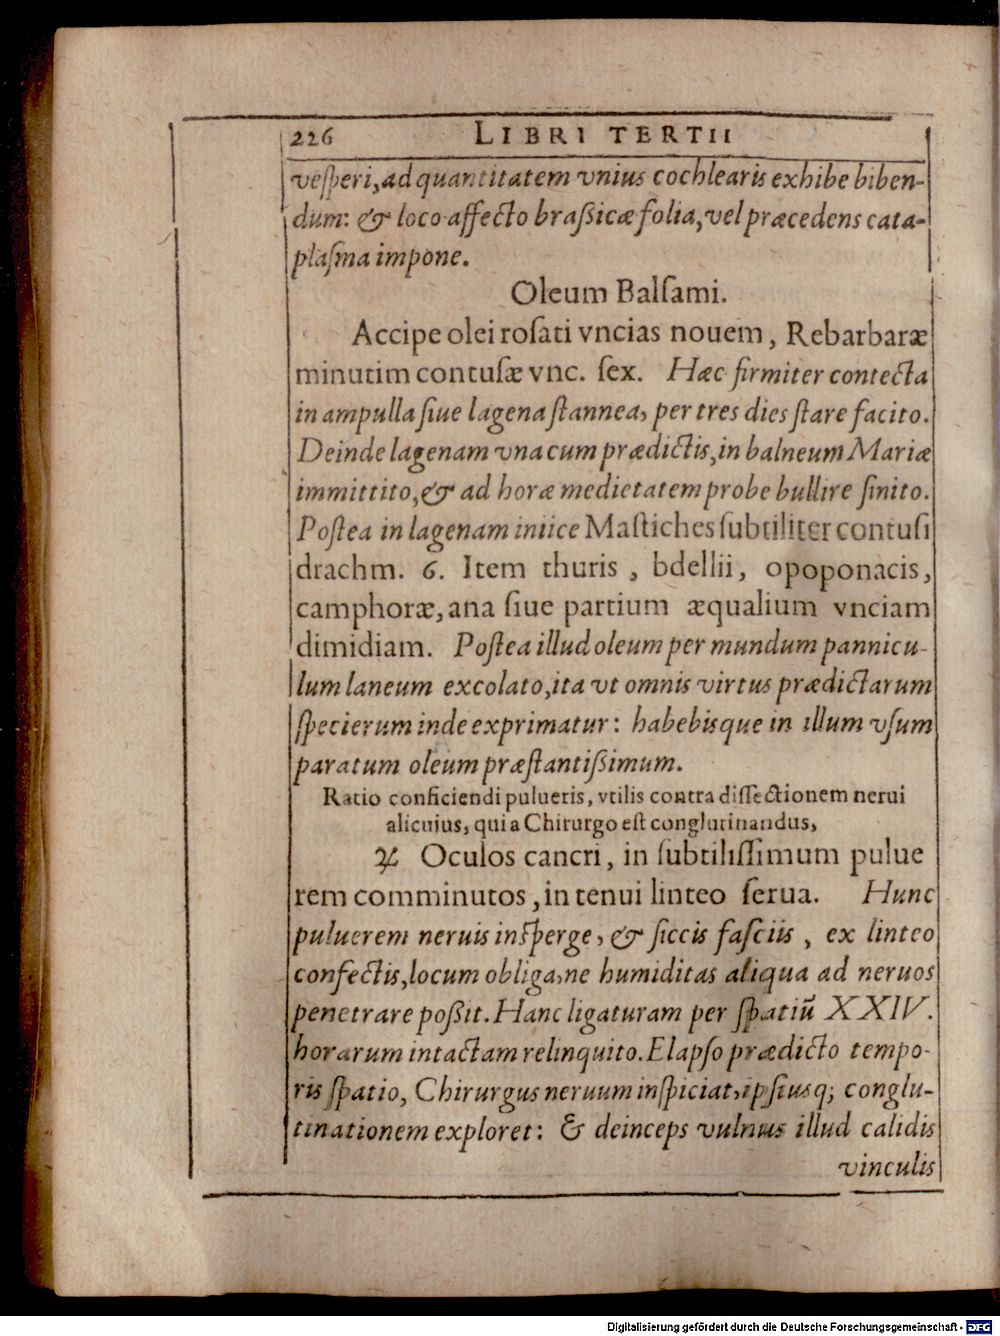 226 LIBRI TERTII
veſperi, ad quantitatem vnius cochlearis exhibe biben-
dum: & loco affecto braſsicæ folia, vel præcedens cata-
plaſma impone.
Oleum Balſami.
Accipe olei roſati vncias nouem, Rebarbaræ
minutim contuſæ vnc. ſex. Hæc firmiter contecta
in ampulla ſiue lagena ſtannea, per tres dies ſtare facito.
Deinde lagenam vna cum prædictis, in balneum Mariæ
immittito, & ad horæ medietatem probe bullire ſinito.
Poſtea in lagenam iniice Maſtiches ſubtiliter contuſi
drachm. 6. Item thuris, bdellii, opoponacis,
camphoræ, ana ſiue partium æqualium vnciam
dimidiam. Poſtea illud oleum per mundum pannicu-
lum laneum excolato, ita vt omnis virtus prædictarum
ſpecierum inde exprimatur: habebisque in illum vſum
paratum oleum præſtantiſsimum.
Ratio conficiendi pulueris, vtilis contra diſſectionem nerui
alicuius, qui a Chirurgo eſt conglutinandus,
℞ Oculos cancri, in ſubtiliſſimum pulue
rem comminutos, in tenui linteo ſerua. Hunc
puluerem neruis inſperge, & ſiccis faſciis, ex linteo
confectis, locum obliga, ne humiditas aliqua ad neruos
penetrare poſsit. Hanc ligaturam per ſpatiũ XXIV.
horarum intactam relinquito. Elapſo prædicto tempo-
ris ſpatio, Chirurgus neruum inſpiciat, ipſiusq; conglu-
tinationem exploret: & deinceps vulnus illud calidis
vinculis
Digitalisierung gefördert durch die Deutsche Forschungsgemeinschaft - DFG